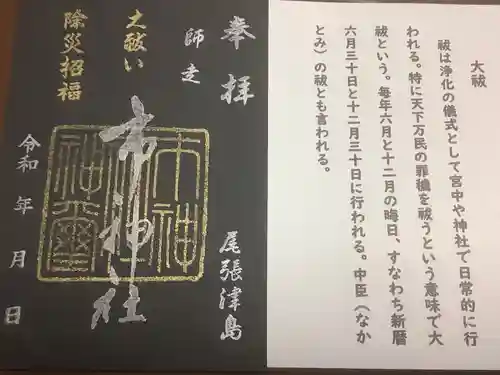 奉拝
師走
大祓い
除災招福
市神社
尾張津島
令和 年 月 日
大祓
祓は浄化の儀式として宮中や神社で日常的に行
われる。特に天下万民の罪穢を祓うという意味で大
祓という。毎年六月と十二月の晦日、すなわち新暦
六月三十日と十二月三十日に行われる。中臣(なか
とみ)の祓とも言われる。